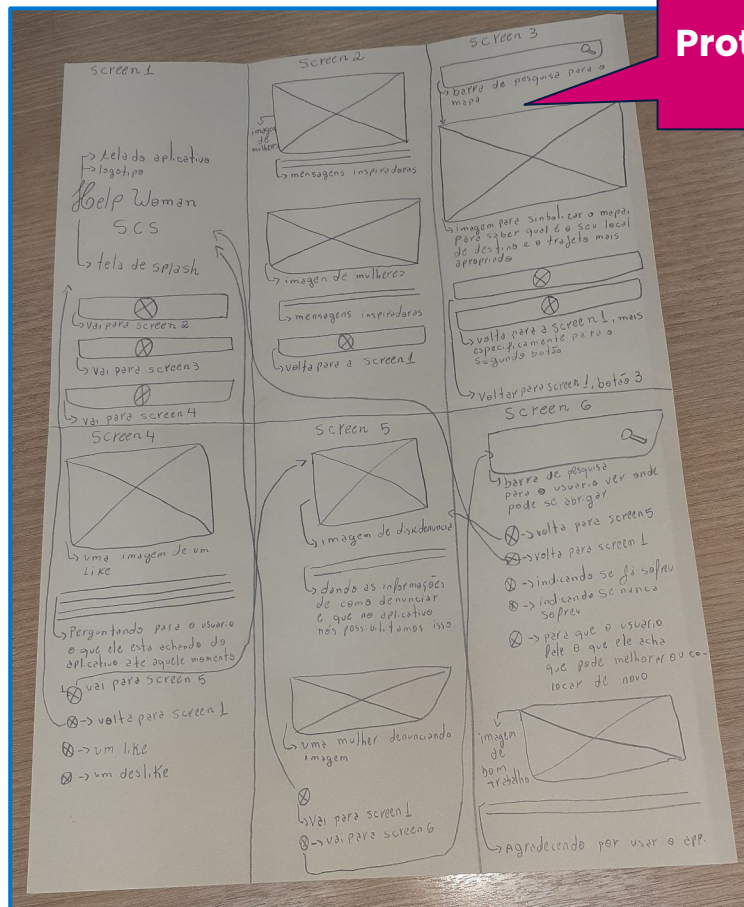 Prot
Screen 1
↳ tela do aplicativo
↳ logotipo
Help Woman
SCS
↳ tela de splash
↳ vai para screen 2
↳ vai para screen 3
↳ vai para screen 4
Screen 2
imagem
de
mulher
↳ mensagens inspiradoras
↳ imagen de mulheres
↳ mensagens inspiradoras
↳ volta para a screen 1
Screen 3
↳ barra de pesquisa para o
mapa
↳ imagem para sinbolizar o mapa,
para saber qual é o seu local
de destino e o trajeto mais
apropriado
↳ volta para a screen 1, mais
especificamente para o
segundo botão
↳ Voltar para screen 1, botão 3
Screen 4
↳ uma imagem de um
like
↳ Perguntando para o usuario
o que ele esta achando do
aplicativo ate aquele momento
↳ vai para screen 5
→ volta para screen 1
→ um like
→ um deslike
Screen 5
↳ imagem de diskdenuncia
↳ dando as informações
de como denunciar
e que no aplicativo
nós possibilitamos isso
↳ uma mulher denunciando
imagem
↳ Vai para screen 1
→ vai para screen 6
Screen 6
↳ barra de pesquisa
para o usuario ver onde
pode se abrigar
→ volta para screen 5
→ volta para screen 1
→ indicando se já sofreu
→ indicando se nunca
sofreu
→ para que o usuario
fale o que ele acha
que pode melhorar ou co-
locar de novo
imagem
de
bom
trabalho
↳ Agradecendo por usar o app.